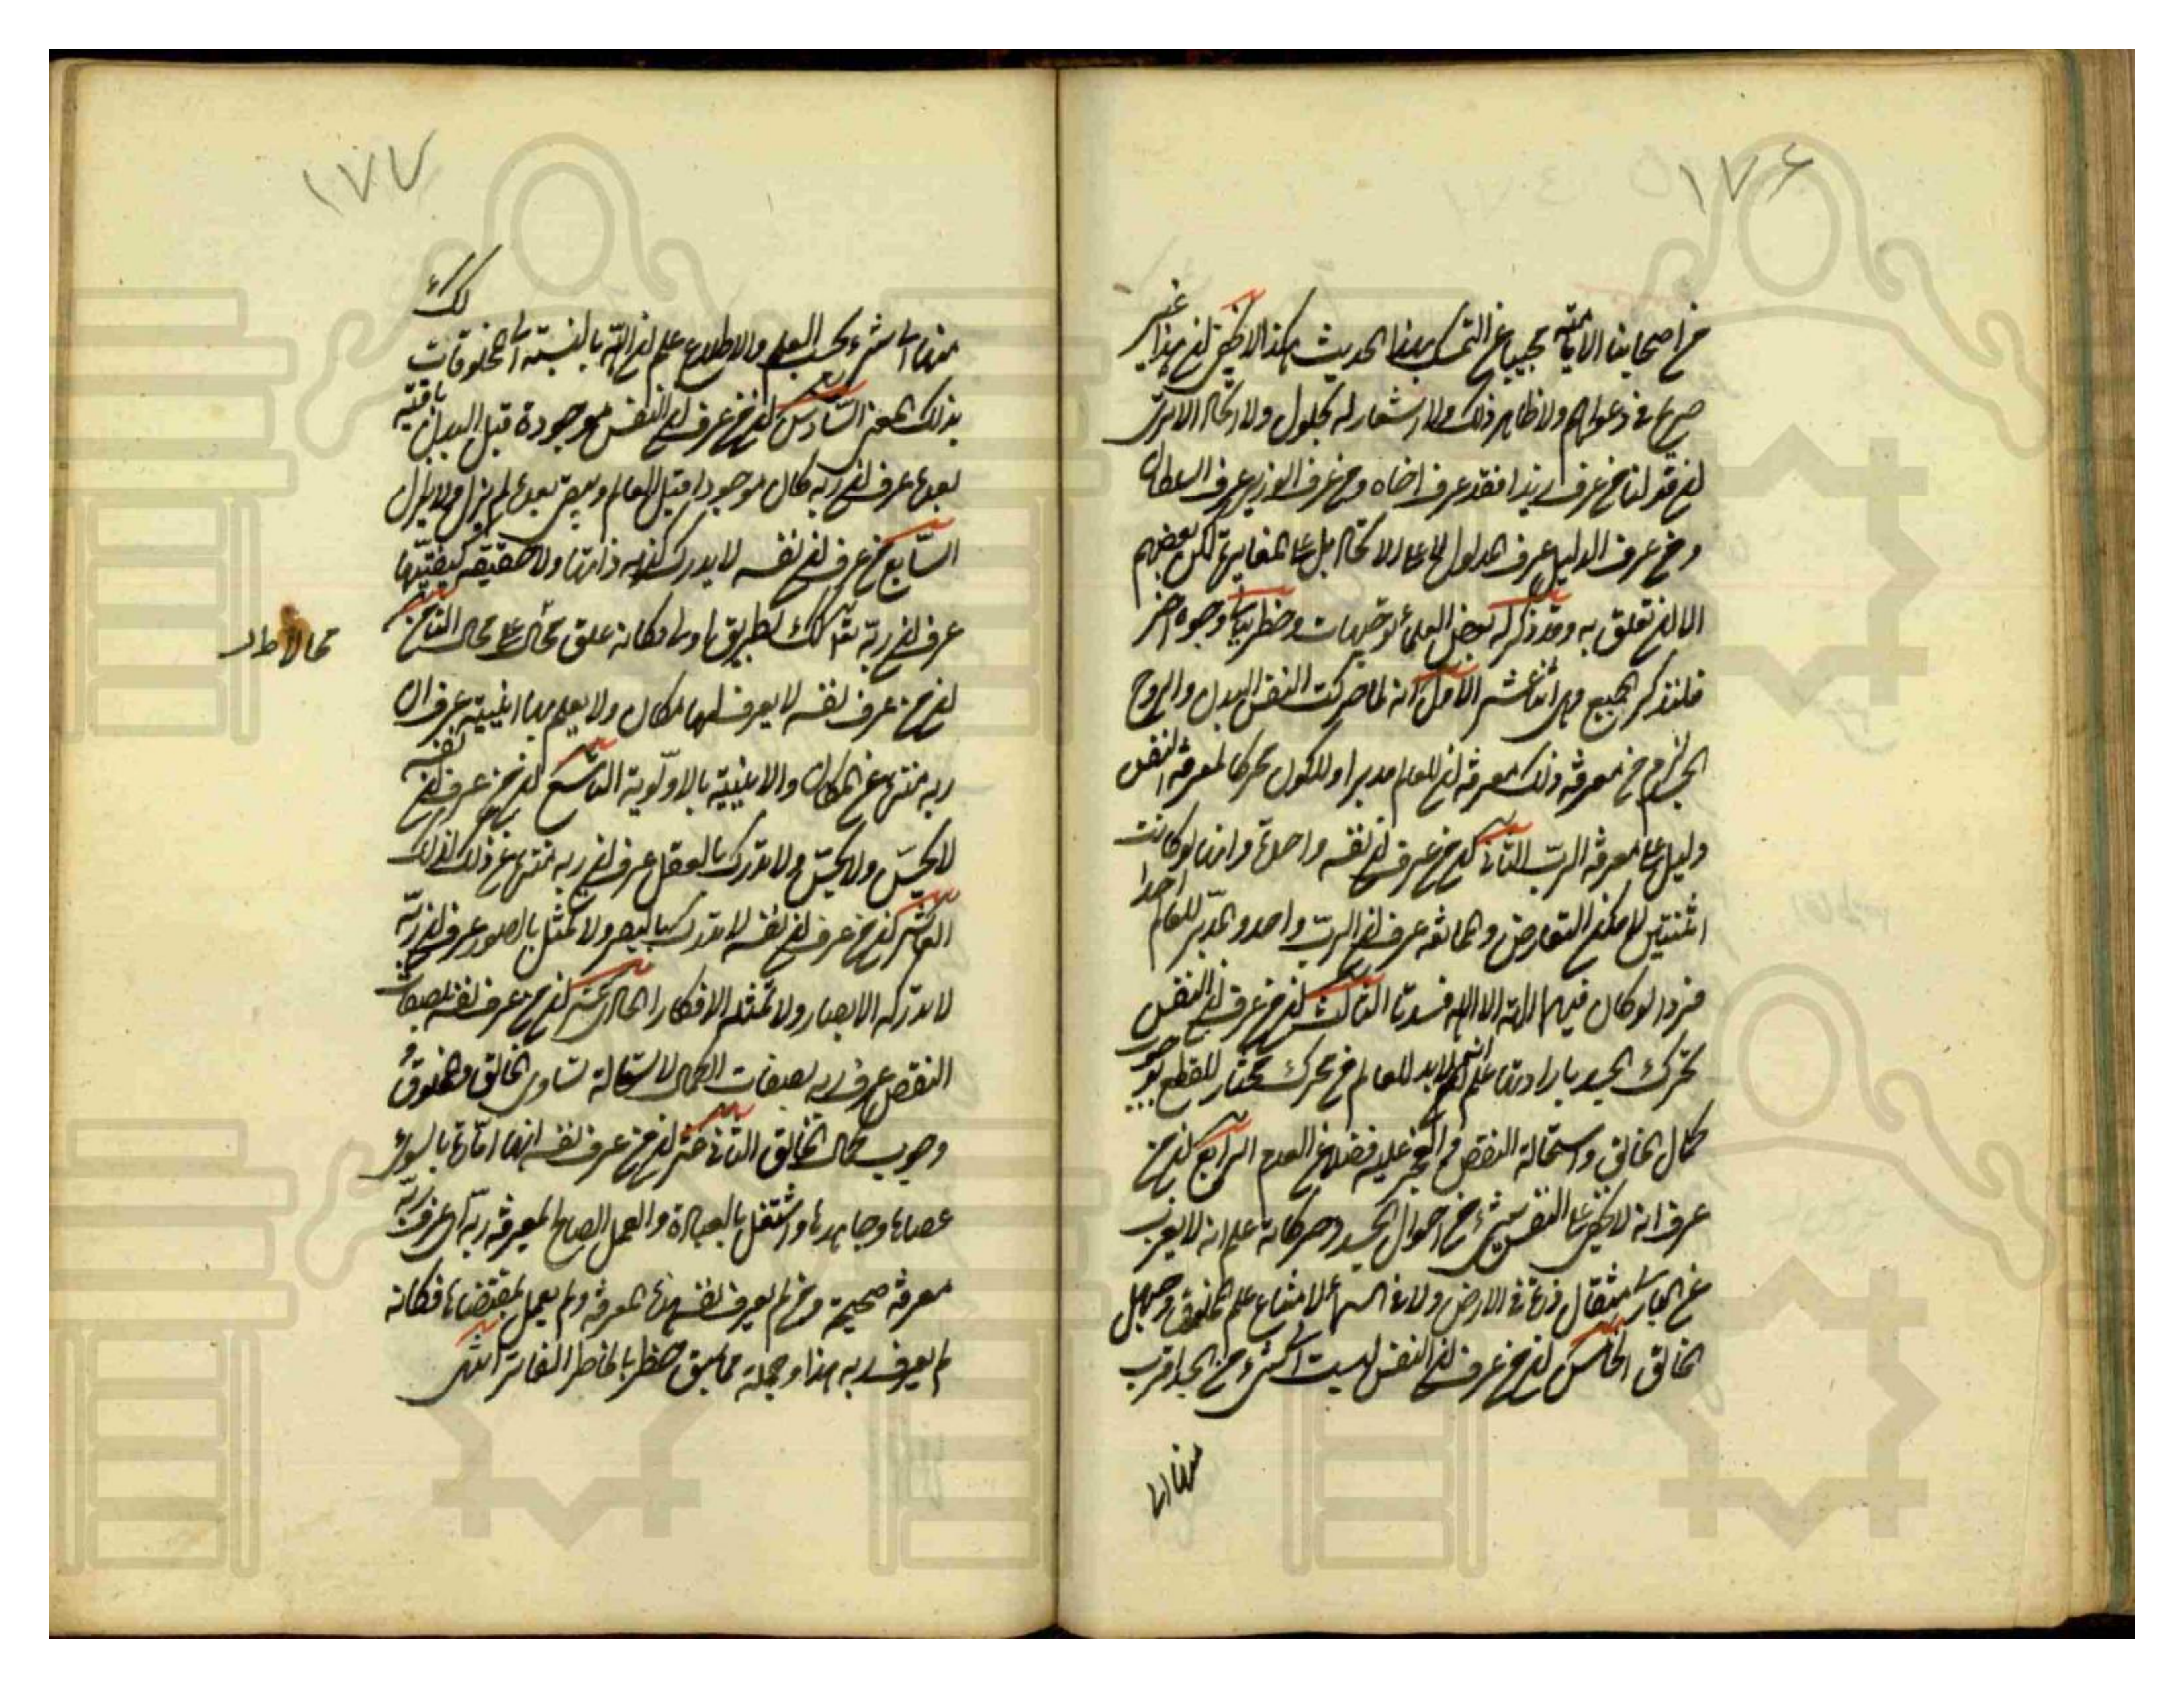 ١٧۶
من اصحابنا الامامية مجيبا عن التمسك بهذا الحديث هكذا لا يخفى ان هذا غير
صريح في دعواهم ولا ظاهر في ذلك ولا اشعار له بحلول ولا اتحاد الا ترى
ان قولنا من عرف زيدا فقد عرف اخاه ومن عرف الوزير عرف السلطان
ومن عرف الدليل عرف المدلول لا يدل على الاتحاد بل على المغايرة لكن بعضهم
الان تعلق به وقد ذكر له بعض العلماء توجيهات وخطر ببالي وجوه اخر
فلنذكر الجميع وهي اثنا عشر الاول انه لما حركت النفس البدن والروح
الجسد لزم من معرفة ذلك معرفة ان للعالم مدبرا وللكون محركا لمعرفة النفس
دليل على معرفة الرب الثاني ان من عرف ان نفسه واحدة وانها لو كانت
اثنتين لامكن التعارض والممانعة عرف ان الرب واحد والمدبر للعالم احدا
فردا لو كان فيهما الهة الا الله لفسدتا الثالث ان من عرف ان النفس
تحرك الجسد بارادتها علم انه لا بد للعالم من محرك مختار للقطع بوجوب
كمال الخالق واستحالة النقص والعجز عليه فضلا عن العدم الرابع ان من
عرف انه لا يخفى على النفس شيء من احوال الجسد وحركاته علم انه لا يعزب
عن الباري مثقال ذرة في الارض ولا في السماء لامتناع علم المخلوق وجهل
الخالق الخامس ان من عرف ان النفس ليست الى شيء من الجسد اقرب
منها الى
١٧٧
منها الى شيء بحسب العلم والاطلاع علم ان الله بالنسبة الى المخلوقات كذلك
بذلك المعنى السادس ان من عرف ان النفس موجودة قبل البدن باقية
بعده عرف ان ربه كان موجودا قبل العالم ويبقى بعده لم يزل ولا يزال
السابع من عرف ان نفسه لا يدرك كنه ذاتها ولا حقيقة كيفيتها
عرف ان ربه كذلك بطريق اولى فكانه علق محالا على محال الثامن
ان من عرف نفسه لا يعرف لها مكان ولا يعلم لها اينية عرف ان
ربه منزه عن المكان والاينية بالاولوية التاسع ان من عرف ان نفسه
لا تحس ولا تجس ولا تدرك بالعقل عرف ان ربه منزه عن ذلك كذلك
العاشر ان من عرف ان نفسه لا تدرك بالبصر ولا تمثل بالصور عرف ان ربه
لا تدركه الابصار ولا تمثله الافكار الحادي عشر ان من عرف نفسه بصفات
النقص عرف ربه بصفات الكمال لاستحالة تساوي الخالق والمخلوق و
وجوب كمال الخالق الثاني عشر ان من عرف نفسه انها امارة بالسوء
عصاها وجاهدها واشتغل بالعبادة والعمل الصالح لمعرفة ربه اي عرف ربه
معرفة صحيحة ومن لم يعرف نفسه هذه المعرفة ولم يعمل بمقتضاها فكانه
لم يعرف ربه هذا وجملة مما سبق خطر بالخاطر الفاتر انتهى